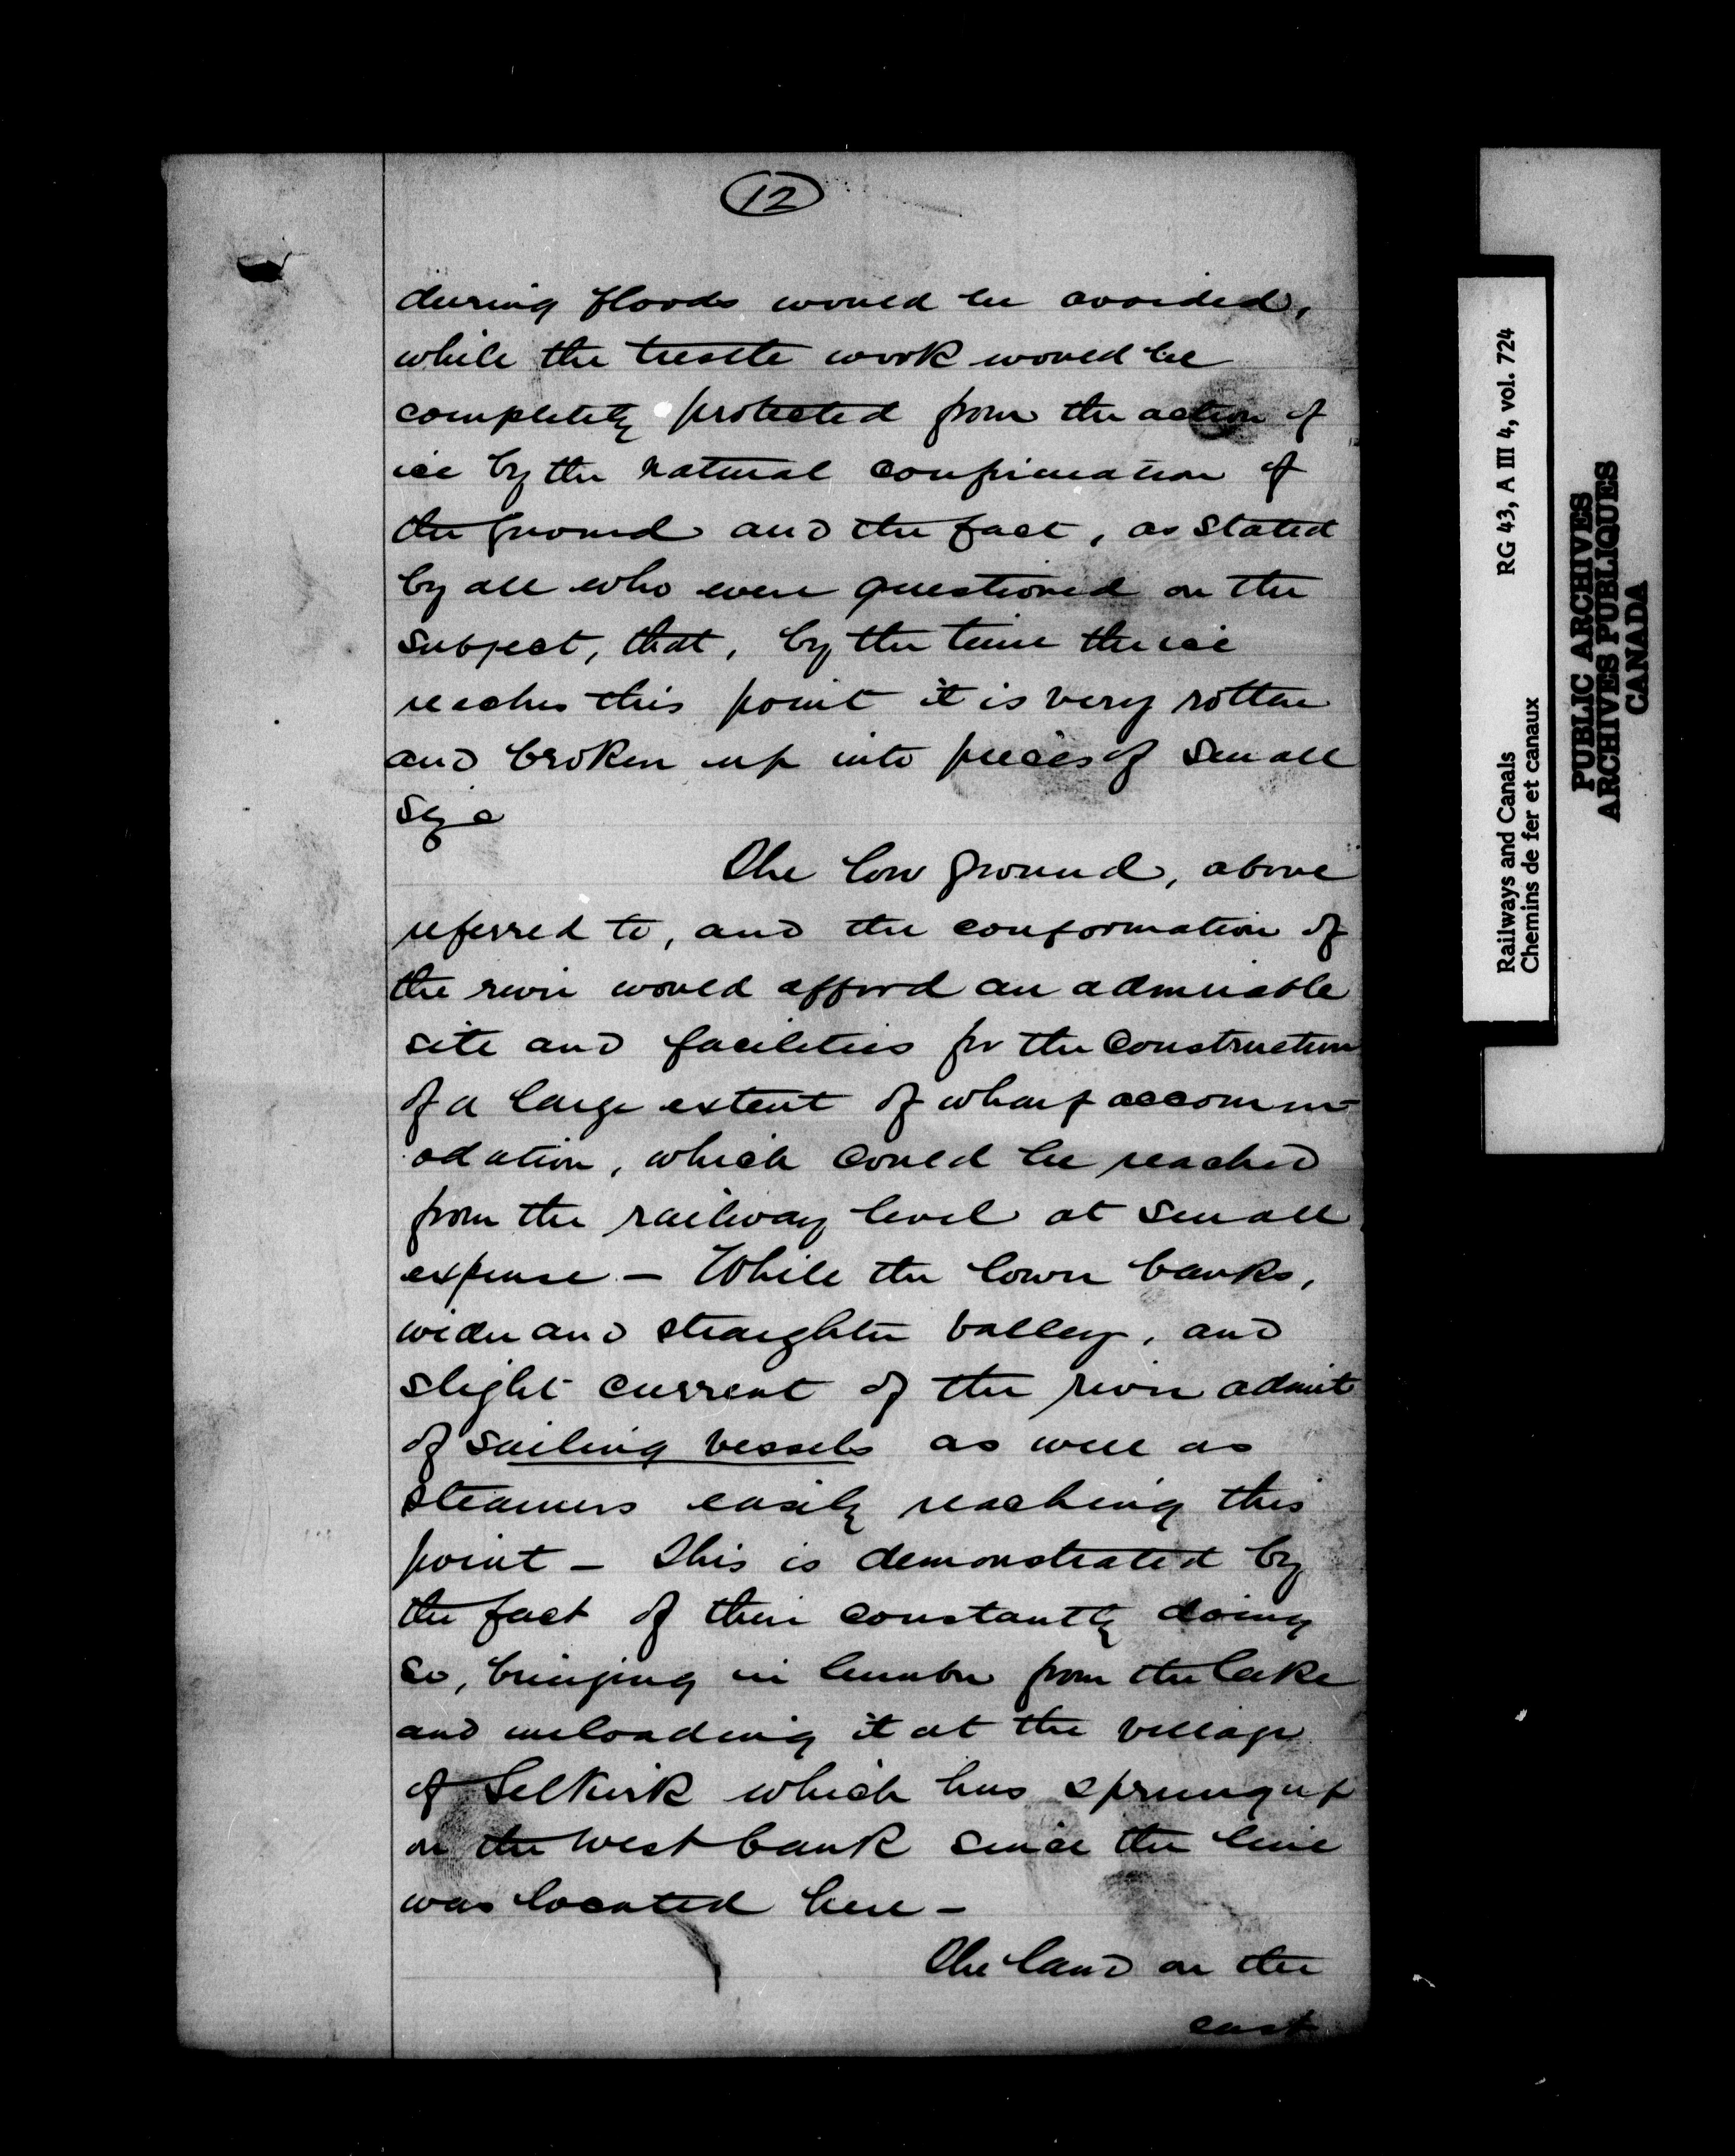 12
during floods would be avoided,
while the trestle work would be
completely protected from the action of
ice by the natural confirmation of
the ground and the fact, as stated
by all who were questioned on the
subject, that, by the time the ice
reaches this point it is very rotten
and broken up into pieces of small
size
The low ground, above
referred to, and the conformation of
the river would afford an admirable
site and facilities for the construction
of a large extent of wharf accomm-
odation, which could be reached
from the railway level at small
expense – While the lower banks,
wider and straighter valley, and
slight current of the river admit
of sailing vessels as well as
steamers easily reaching this
point – This is demonstrated by
the fact of their constantly doing
so, bringing in lumber from the lake
and unloading it at the village
of Selkirk which has sprung up
on the west bank since the line
was located here –
The land on the
east
Railways and Canals RG 43, A III 4, vol. 724
Chemins de fer et canaux
PUBLIC ARCHIVES
ARCHIVES PUBLIQUES
CANADA